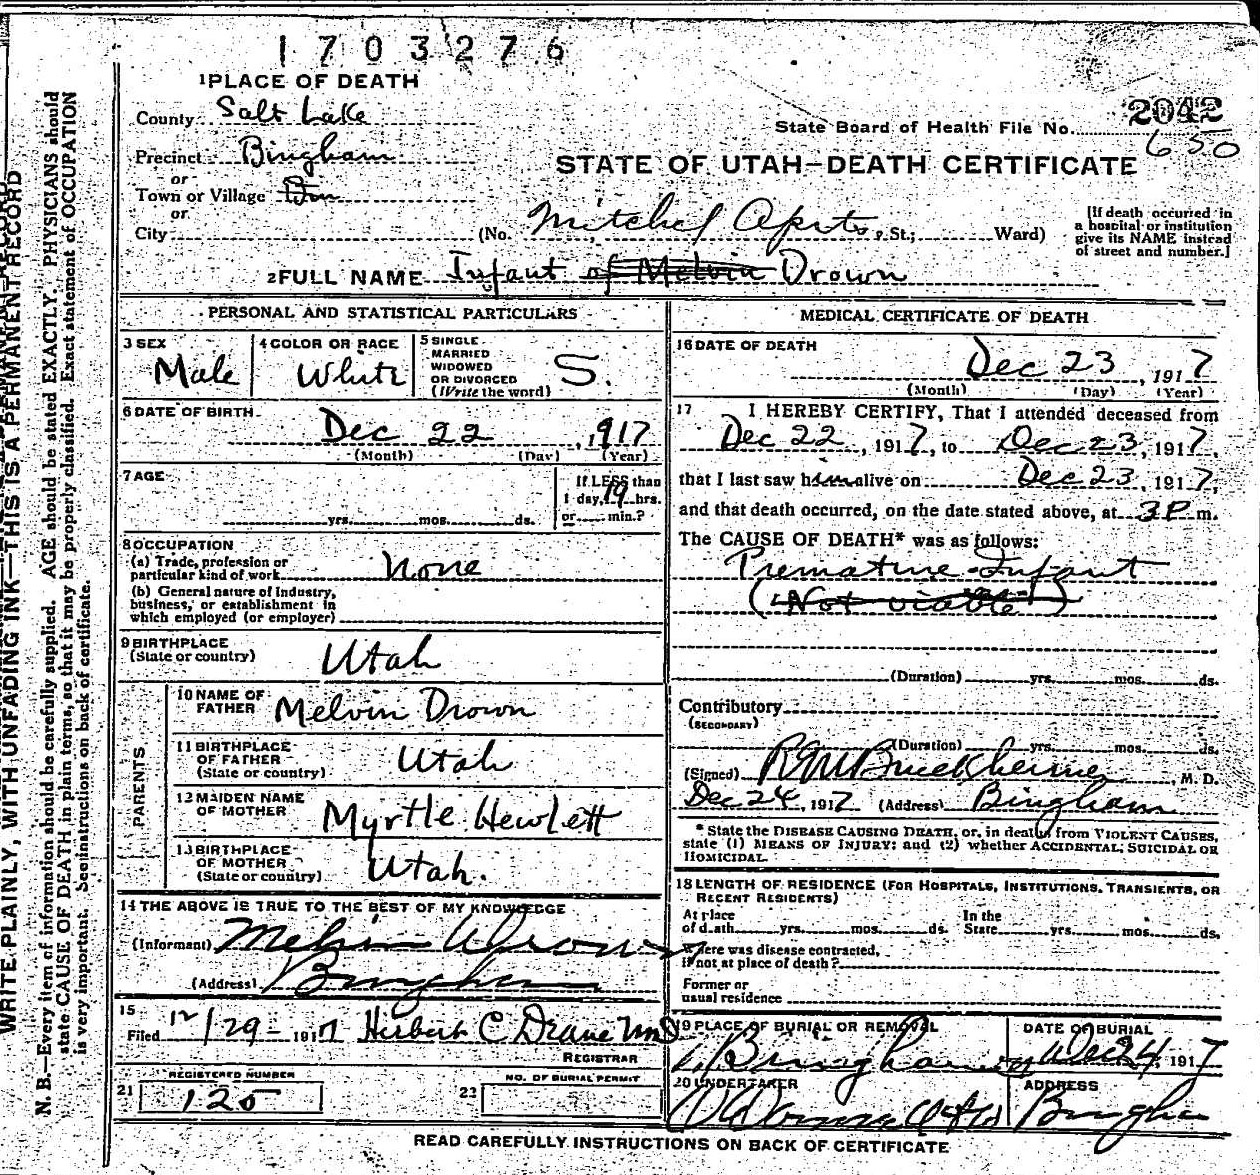 1703276
1 PLACE OF DEATH
County Salt Lake
2042
State Board of Health File No. 650
Precinct Bingham
STATE OF UTAH—DEATH CERTIFICATE
or
Town or Village
or
City (No. Mitchel Aprts. St.; Ward)
[If death occurred in a hospital or institution give its NAME instead of street and number.]
2 FULL NAME Infant of Melvin Drown
PERSONAL AND STATISTICAL PARTICULARS
3 SEX Male
4 COLOR OR RACE White
5 SINGLE MARRIED WIDOWED OR DIVORCED (Write the word) S.
6 DATE OF BIRTH
Dec 22, 1917
(Month) (Day) (Year)
7 AGE
yrs. mos. ds.
If LESS than 1 day, 19 hrs. or min.?
8 OCCUPATION
(a) Trade, profession or particular kind of work None
(b) General nature of industry, business, or establishment in which employed (or employer)
9 BIRTHPLACE
(State or country) Utah
PARENTS
10 NAME OF FATHER Melvin Drown
11 BIRTHPLACE OF FATHER (State or country) Utah
12 MAIDEN NAME OF MOTHER Myrtle Hewlett
13 BIRTHPLACE OF MOTHER (State or country) Utah.
14 THE ABOVE IS TRUE TO THE BEST OF MY KNOWLEDGE
(Informant) Melvin Drown
(Address) Bingham
15
Filed 12/29-1917 Herbert C Drane MD
REGISTRAR
REGISTERED NUMBER
21 125
NO. OF BURIAL PERMIT
22
MEDICAL CERTIFICATE OF DEATH
16 DATE OF DEATH
Dec 23, 1917
(Month) (Day) (Year)
17 I HEREBY CERTIFY, That I attended deceased from
Dec 22, 1917, to Dec 23, 1917,
that I last saw him alive on Dec 23, 1917,
and that death occurred, on the date stated above, at 3 P m.
The CAUSE OF DEATH* was as follows:
Premature Infant
(Not viable)
(Duration) yrs. mos. ds.
Contributory
(SECONDARY)
(Duration) yrs. mos. ds.
(Signed) M. D.
Dec 24, 1917 (Address) Bingham
* State the DISEASE CAUSING DEATH, or, in deaths from VIOLENT CAUSES, state (1) MEANS OF INJURY; and (2) whether ACCIDENTAL, SUICIDAL OR HOMICIDAL.
18 LENGTH OF RESIDENCE (FOR HOSPITALS, INSTITUTIONS, TRANSIENTS, OR RECENT RESIDENTS)
At place of death yrs. mos. ds. In the State yrs. mos. ds.
Where was disease contracted, if not at place of death?
Former or usual residence
19 PLACE OF BURIAL OR REMOVAL
Bingham
DATE OF BURIAL
Dec 24, 1917
20 UNDERTAKER
ADDRESS
Bingham
READ CAREFULLY INSTRUCTIONS ON BACK OF CERTIFICATE
WRITE PLAINLY, WITH UNFADING INK—THIS IS A PERMANENT RECORD
N. B.—Every item of information should be carefully supplied. AGE should be stated EXACTLY. PHYSICIANS should
state CAUSE OF DEATH in plain terms, so that it may be properly classified. Exact statement of OCCUPATION
is very important. See instructions on back of certificate.